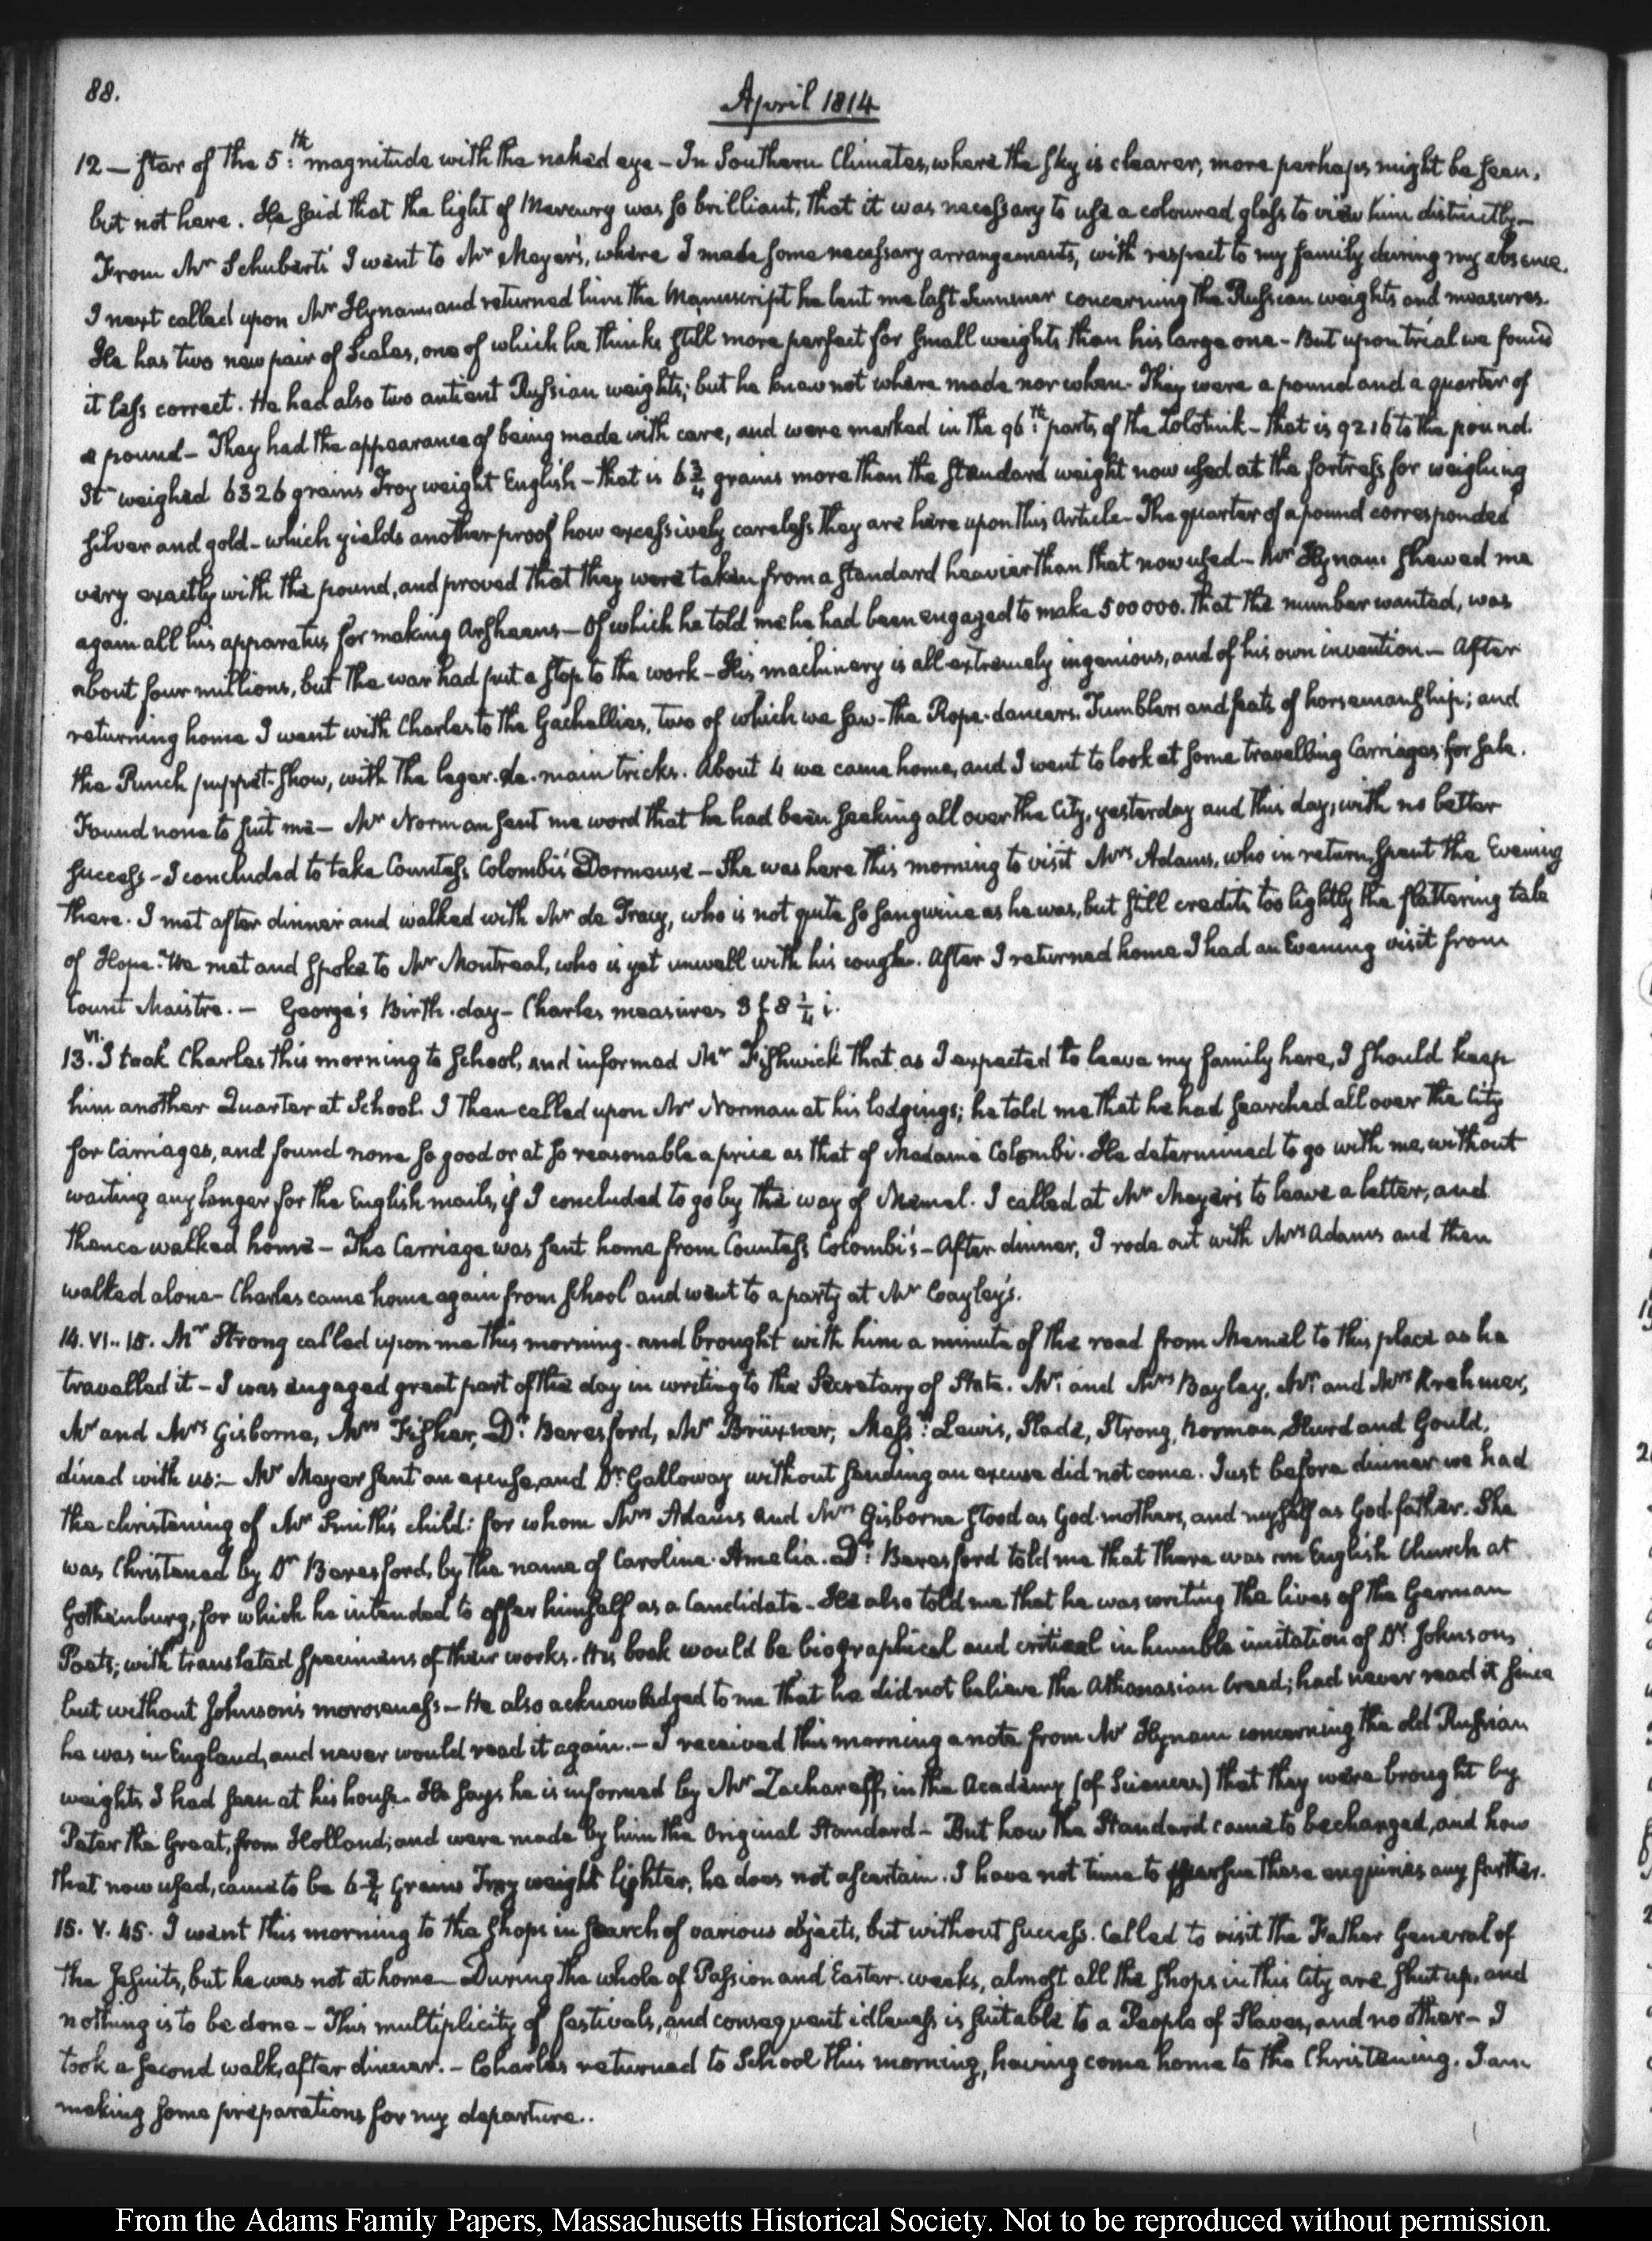 88.
April 1814
12 — star of the 5:th magnitude with the naked eye – In Southern Climates, where the sky is clearer, more perhaps might be seen,
but not here. He said that the light of Mercury was so brilliant, that it was necessary to use a coloured glass to view him distinctly –
From Mr Schubert's I went to Mr Meyer's, where I made some necessary arrangements, with respect to my family during my absence.
I next called upon Mr Hynam, and returned him the Manuscript he lent me last Summer concerning the Russian weights and measures.
He has two new pair of Scales, one of which he thinks still more perfect for small weights than his large one – But upon trial we found
it less correct. He had also two antient Russian weights; but he knew not where made nor when. They were a pound and a quarter of
a pound – They had the appearance of being made with care, and were marked in the 96:th parts of the Zolotnik – that is 9216 to the pound.
It weighed 6326 grains Troy weight English – that is 6 3/4 grains more than the standard weight now used at the fortress for weighing
silver and gold – which yields another proof how excessively careless they are here upon this Article – The quarter of a pound corresponded
very exactly with the pound, and proved that they were taken from a standard heavier than that now used – Mr Hynam shewed me
again all his apparatus for making Arsheens – Of which he told me he had been engaged to make 500000. that the number wanted, was
about four millions, but the war had put a stop to the work – His machinery is all extremely ingenious, and of his own invention – After
returning home I went with Charles to the Gachellies, two of which we saw – the Rope-dancers. Tumblers and feats of horsemanship; and
the Punch puppet-show, with the leger-de-main tricks. About 4 we came home, and I went to look at some travelling Carriages for sale.
Found none to suit me – Mr Norman sent me word that he had been seeking all over the City, yesterday and this day, with no better
success – I concluded to take Countess Colombi's Dormeuse – She was here this morning to visit Mrs Adams, who in return, spent the Evening
there. I met after dinner and walked with Mr de Tracy, who is not quite so sanguine as he was, but still credits too lightly the flattering tale
of Hope. We met and spoke to Mr Montreal, who is yet unwell with his cough. After I returned home I had an Evening visit from
Count Maistre. – George's Birth-day – Charles measures 3 f 8 1/4 i.
13. VI. I took Charles this morning to School, and informed Mr Fishwick that as I expected to leave my family here, I should keep
him another Quarter at School. I then called upon Mr Norman at his lodgings; he told me that he had searched all over the City
for Carriages, and found none so good or at so reasonable a price as that of Madame Colombi. He determined to go with me, without
waiting any longer for the English mails, if I concluded to go by the way of Memel. I called at Mr Meyer's to leave a letter, and
thence walked home – The Carriage was sent home from Countess Colombi's – After dinner, I rode out with Mrs Adams and then
walked alone – Charles came home again from School and went to a party at Mr Cayley's.
14. VI.. 15. Mr Strong called upon me this morning. and brought with him a minute of the road from Memel to this place as he
travelled it – I was engaged great part of the day in writing to the Secretary of State. Mr: and Mrs Bayley, Mr: and Mrs Krehmer,
Mr and Mrs Gisborne, Mrs Fisher, Dr: Beresford, Mr Brüxner, Messrs: Lewis, Slade, Strong, Norman, Hurd and Gould,
dined with us: – Mr Meyer sent an excuse, and Dr: Galloway without sending an excuse did not come. Just before dinner we had
the christening of Mr Smith's child: for whom Mrs Adams and Mrs Gisborne stood as God-mothers, and myself as God-father. She
was Christened by Dr Beresford, by the name of Caroline-Amelia. Dr: Beresford told me that there was an English Church at
Gothenburg, for which he intended to offer himself as a Candidate – He also told me that he was writing the lives of the German
Poets; with translated specimens of their works. His book would be biographical and critical in humble imitation of Dr Johnson,
but without Johnson's moroseness – He also acknowledged to me that he did not believe the Athanasian Creed; had never read it since
he was in England, and never would read it again. – I received this morning a note from Mr Hynam concerning the old Russian
weights I had seen at his house. He says he is informed by Mr Zachareff, in the Academy (of Sciences) that they were brought by
Peter the Great, from Holland; and were made by him the Original Standard – But how the Standard came to be changed, and how
that now used, came to be 6 3/4 Grains Troy weight lighter, he does not ascertain. I have not time to pursue these enquiries any further.
15. V. 45. I went this morning to the shops in search of various objects, but without success. Called to visit the Father General of
the Jesuits, but he was not at home – During the whole of Passion and Easter-weeks, almost all the shops in this City are shut up, and
nothing is to be done – This multiplicity of festivals, and consequent idleness is suitable to a People of Slaves, and no other – I
took a second walk, after dinner. – Charles returned to School this morning, having come home to the Christening. I am
making some preparations for my departure..
From the Adams Family Papers, Massachusetts Historical Society. Not to be reproduced without permission.